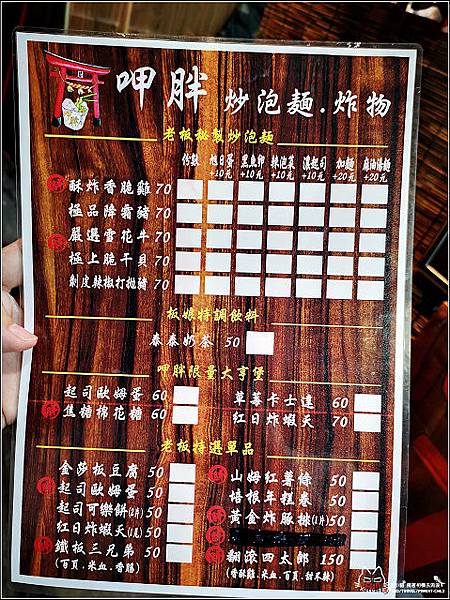 呷胖 炒泡麵.炸物
老板秘製炒泡麵
份數 旭日蛋+10元 黑魚卵+10元 辣泡菜+10元 濃起司+10元 加麵+20元 麻油湯麵+20元
酥炸香脆雞 70
極品降霜豬 70
嚴選雪花牛 70
極上脆干貝 70
剝皮辣椒打拋豬 70
板娘特調飲料
泰泰奶茶 50
呷胖限量大亨堡
起司歐姆蛋 60
草莓卡士達 60
焦糖棉花糖 60
紅日炸蝦天 70
老板特選單品
金莎板豆腐 50
山姆紅薯條 50
起司歐姆蛋 50
培根年糕卷 50
起司可樂餅(2片) 50
黃金炸豚排(1片) 50
紅日炸蝦天(1尾) 50
鐵板三兄弟 50
(百頁.米血.香腸)
翻滾四太郎 150
(香酥雞.米血.百頁.甜不辣)